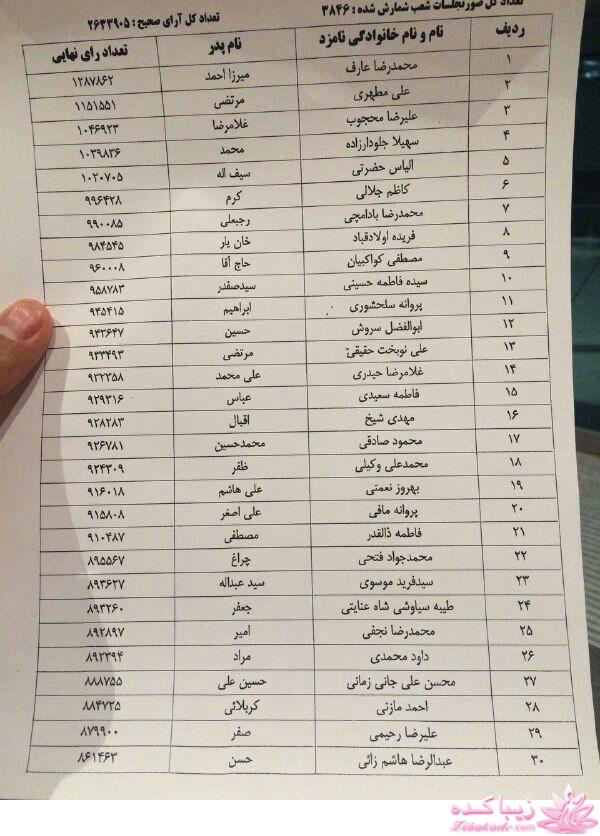 تعداد کل صورتجلسات شعب شمارش شده : ۳۸۴۶ تعداد کل آرای صحیح : ۲۶۳۳۹۰۵
ردیف نام و نام خانوادگی نامزد نام پدر تعداد رای نهایی
۱ محمدرضا عارف میرزا احمد ۱۲۸۷۸۶۲
۲ علی مطهری مرتضی ۱۱۵۱۵۵۱
۳ علیرضا محجوب غلامرضا ۱۰۴۶۹۲۳
۴ سهیلا جلودارزاده محمد ۱۰۳۹۸۳۶
۵ الیاس حضرتی سیف اله ۱۰۲۰۷۰۵
۶ کاظم جلالی کرم ۹۹۶۴۲۸
۷ محمدرضا بادامچی رجبعلی ۹۹۰۰۸۵
۸ فریده اولادقباد خان یار ۹۸۴۵۴۵
۹ مصطفی کواکبیان حاج آقا ۹۶۰۰۰۸
۱۰ سیده فاطمه حسینی سیدصفدر ۹۵۸۷۸۳
۱۱ پروانه سلحشوری ابراهیم ۹۴۵۴۱۵
۱۲ ابوالفضل سروش حسین ۹۴۳۶۴۷
۱۳ علی نوبخت حقیقی مرتضی ۹۳۳۴۹۳
۱۴ غلامرضا حیدری علی محمد ۹۳۲۳۵۸
۱۵ فاطمه سعیدی عباس ۹۲۹۳۱۶
۱۶ مهدی شیخ اقبال ۹۲۸۲۸۳
۱۷ محمود صادقی محمدحسین ۹۲۶۷۸۱
۱۸ محمدعلی وکیلی ظفر ۹۲۴۳۰۹
۱۹ بهروز نعمتی علی هاشم ۹۱۶۰۱۸
۲۰ پروانه مافی علی اصغر ۹۱۵۸۰۸
۲۱ فاطمه ذالقدر مصطفی ۹۱۰۴۸۷
۲۲ محمدجواد فتحی چراغ ۸۹۵۵۶۷
۲۳ سیدفرید موسوی سید عبداله ۸۹۳۶۲۷
۲۴ طیبه سیاوشی شاه عنایتی جعفر ۸۹۳۲۶۰
۲۵ محمدرضا نجفی امیر ۸۹۲۸۹۷
۲۶ داود محمدی مراد ۸۹۲۳۹۴
۲۷ محسن علی جانی زمانی حسین علی ۸۸۸۷۵۵
۲۸ احمد مازنی کربلائی ۸۸۴۷۲۵
۲۹ علیرضا رحیمی صفر ۸۷۹۹۰۰
۳۰ عبدالرضا هاشم زائی حسن ۸۶۱۴۶۳
زیباکده